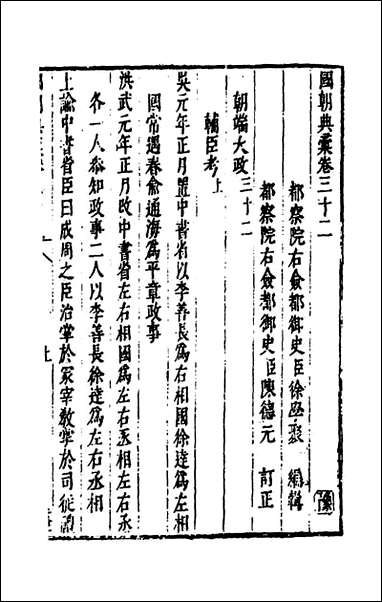 國朝典彙卷三十二
都察院右僉都御史臣徐學聚 編輯
都察院右僉都御史臣陳德元 訂正
朝端大政三十二
輔臣考上
吳元年正月置中書省以李善長爲右相國徐達爲左相
國常遇春俞通海爲平章政事
洪武元年正月改中書省左右相國爲左右丞相左右丞
各一人叅知政事二人以李善長徐達爲左右丞相
上諭中書省臣曰成周之臣治掌於冢宰敎掌於司徒禮